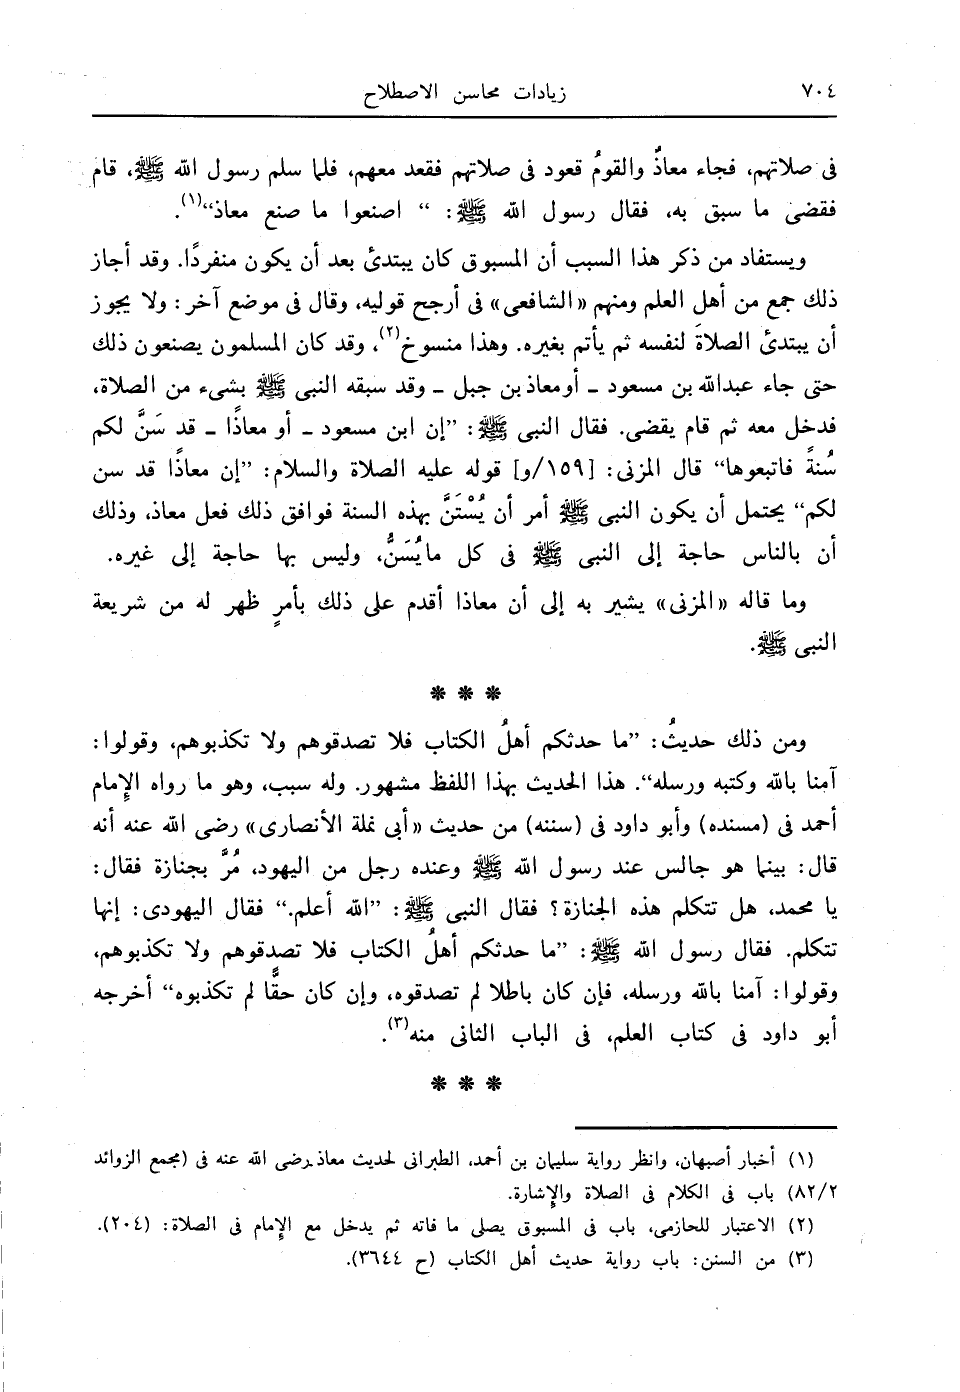 ٧٠٤ زيادات محاسن الاصطلاح
فى صلاتهم، فجاء معاذٌ والقومُ قعود فى صلاتهم فقعد معهم، فلما سلم رسول الله ﷺ، قام
فقضى ما سبق به، فقال رسول الله ﷺ: ” اصنعوا ما صنع معاذ“(١).
ويستفاد من ذكر هذا السبب أن المسبوق كان يبتدئ بعد أن يكون منفردًا. وقد أجاز
ذلك جمع من أهل العلم ومنهم «الشافعى» فى أرجح قوليه، وقال فى موضع آخر: ولا يجوز
أن يبتدئ الصلاةَ لنفسه ثم يأتم بغيره. وهذا منسوخ(٢)، وقد كان المسلمون يصنعون ذلك
حتى جاء عبدالله بن مسعود - أو معاذ بن جبل - وقد سبقه النبى ﷺ بشىء من الصلاة،
فدخل معه ثم قام يقضى. فقال النبى ﷺ: ”إن ابن مسعود - أو معاذًا - قد سَنَّ لكم
سُنةً فاتبعوها“ قال المزنى: [١٥٩/و] قوله عليه الصلاة والسلام: ”إن معاذًا قد سن
لكم“ يحتمل أن يكون النبى ﷺ أمر أن يُسْتَنَّ بهذه السنة فوافق ذلك فعل معاذ، وذلك
أن بالناس حاجة إلى النبى ﷺ فى كل مايُسَنُّ، وليس بها حاجة إلى غيره.
وما قاله «المزنى» يشير به إلى أن معاذا أقدم على ذلك بأمرٍ ظهر له من شريعة
النبى ﷺ.
* * *
ومن ذلك حديثُ: ”ما حدثكم أهلُ الكتاب فلا تصدقوهم ولا تكذبوهم، وقولوا:
آمنا بالله وكتبه ورسله“. هذا الحديث بهذا اللفظ مشهور. وله سبب، وهو ما رواه الإمام
أحمد فى (مسنده) وأبو داود فى (سننه) من حديث «أبى نملة الأنصارى» رضى الله عنه أنه
قال: بينما هو جالس عند رسول الله ﷺ وعنده رجل من اليهود، مُرَّ بجنازة فقال:
يا محمد، هل تتكلم هذه الجنازة؟ فقال النبى ﷺ: ”الله أعلم.“ فقال اليهودى: إنها
تتكلم. فقال رسول الله ﷺ: ”ما حدثكم أهلُ الكتاب فلا تصدقوهم ولا تكذبوهم،
وقولوا: آمنا بالله ورسله، فإن كان باطلا لم تصدقوه، وإن كان حقًّا لم تكذبوه“ أخرجه
أبو داود فى كتاب العلم، فى الباب الثانى منه(٣).
* * *
(١) أخبار أصبهان، وانظر رواية سليمان بن أحمد، الطبرانى لحديث معاذ رضى الله عنه فى (مجمع الزوائد
٨٢/٢) باب فى الكلام فى الصلاة والإشارة.
(٢) الاعتبار للحازمى، باب فى المسبوق يصلى ما فاته ثم يدخل مع الإمام فى الصلاة: (٢٠٤).
(٣) من السنن: باب رواية حديث أهل الكتاب (ح ٣٦٤٤).